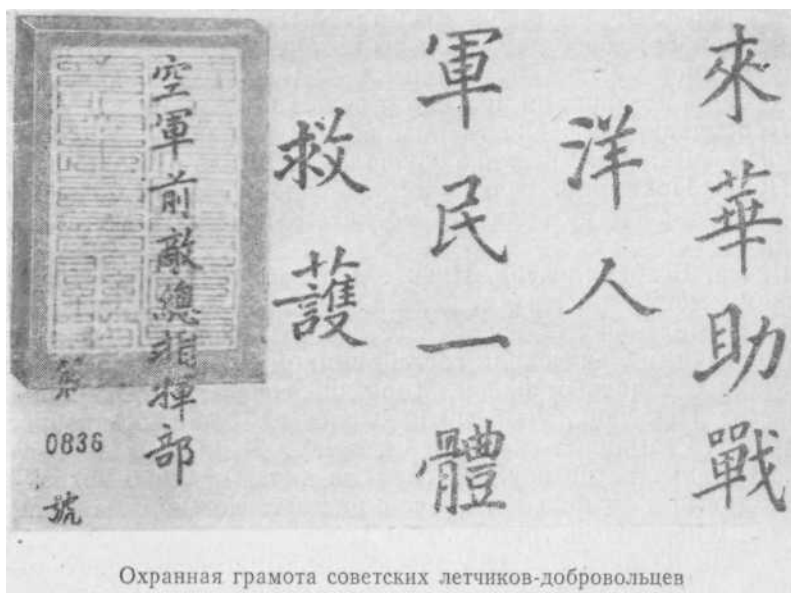 來華助戰
洋人
軍民一體
救護
空軍前敵總指揮部
第
0836
號
Охранная грамота советских летчиков-добровольцев